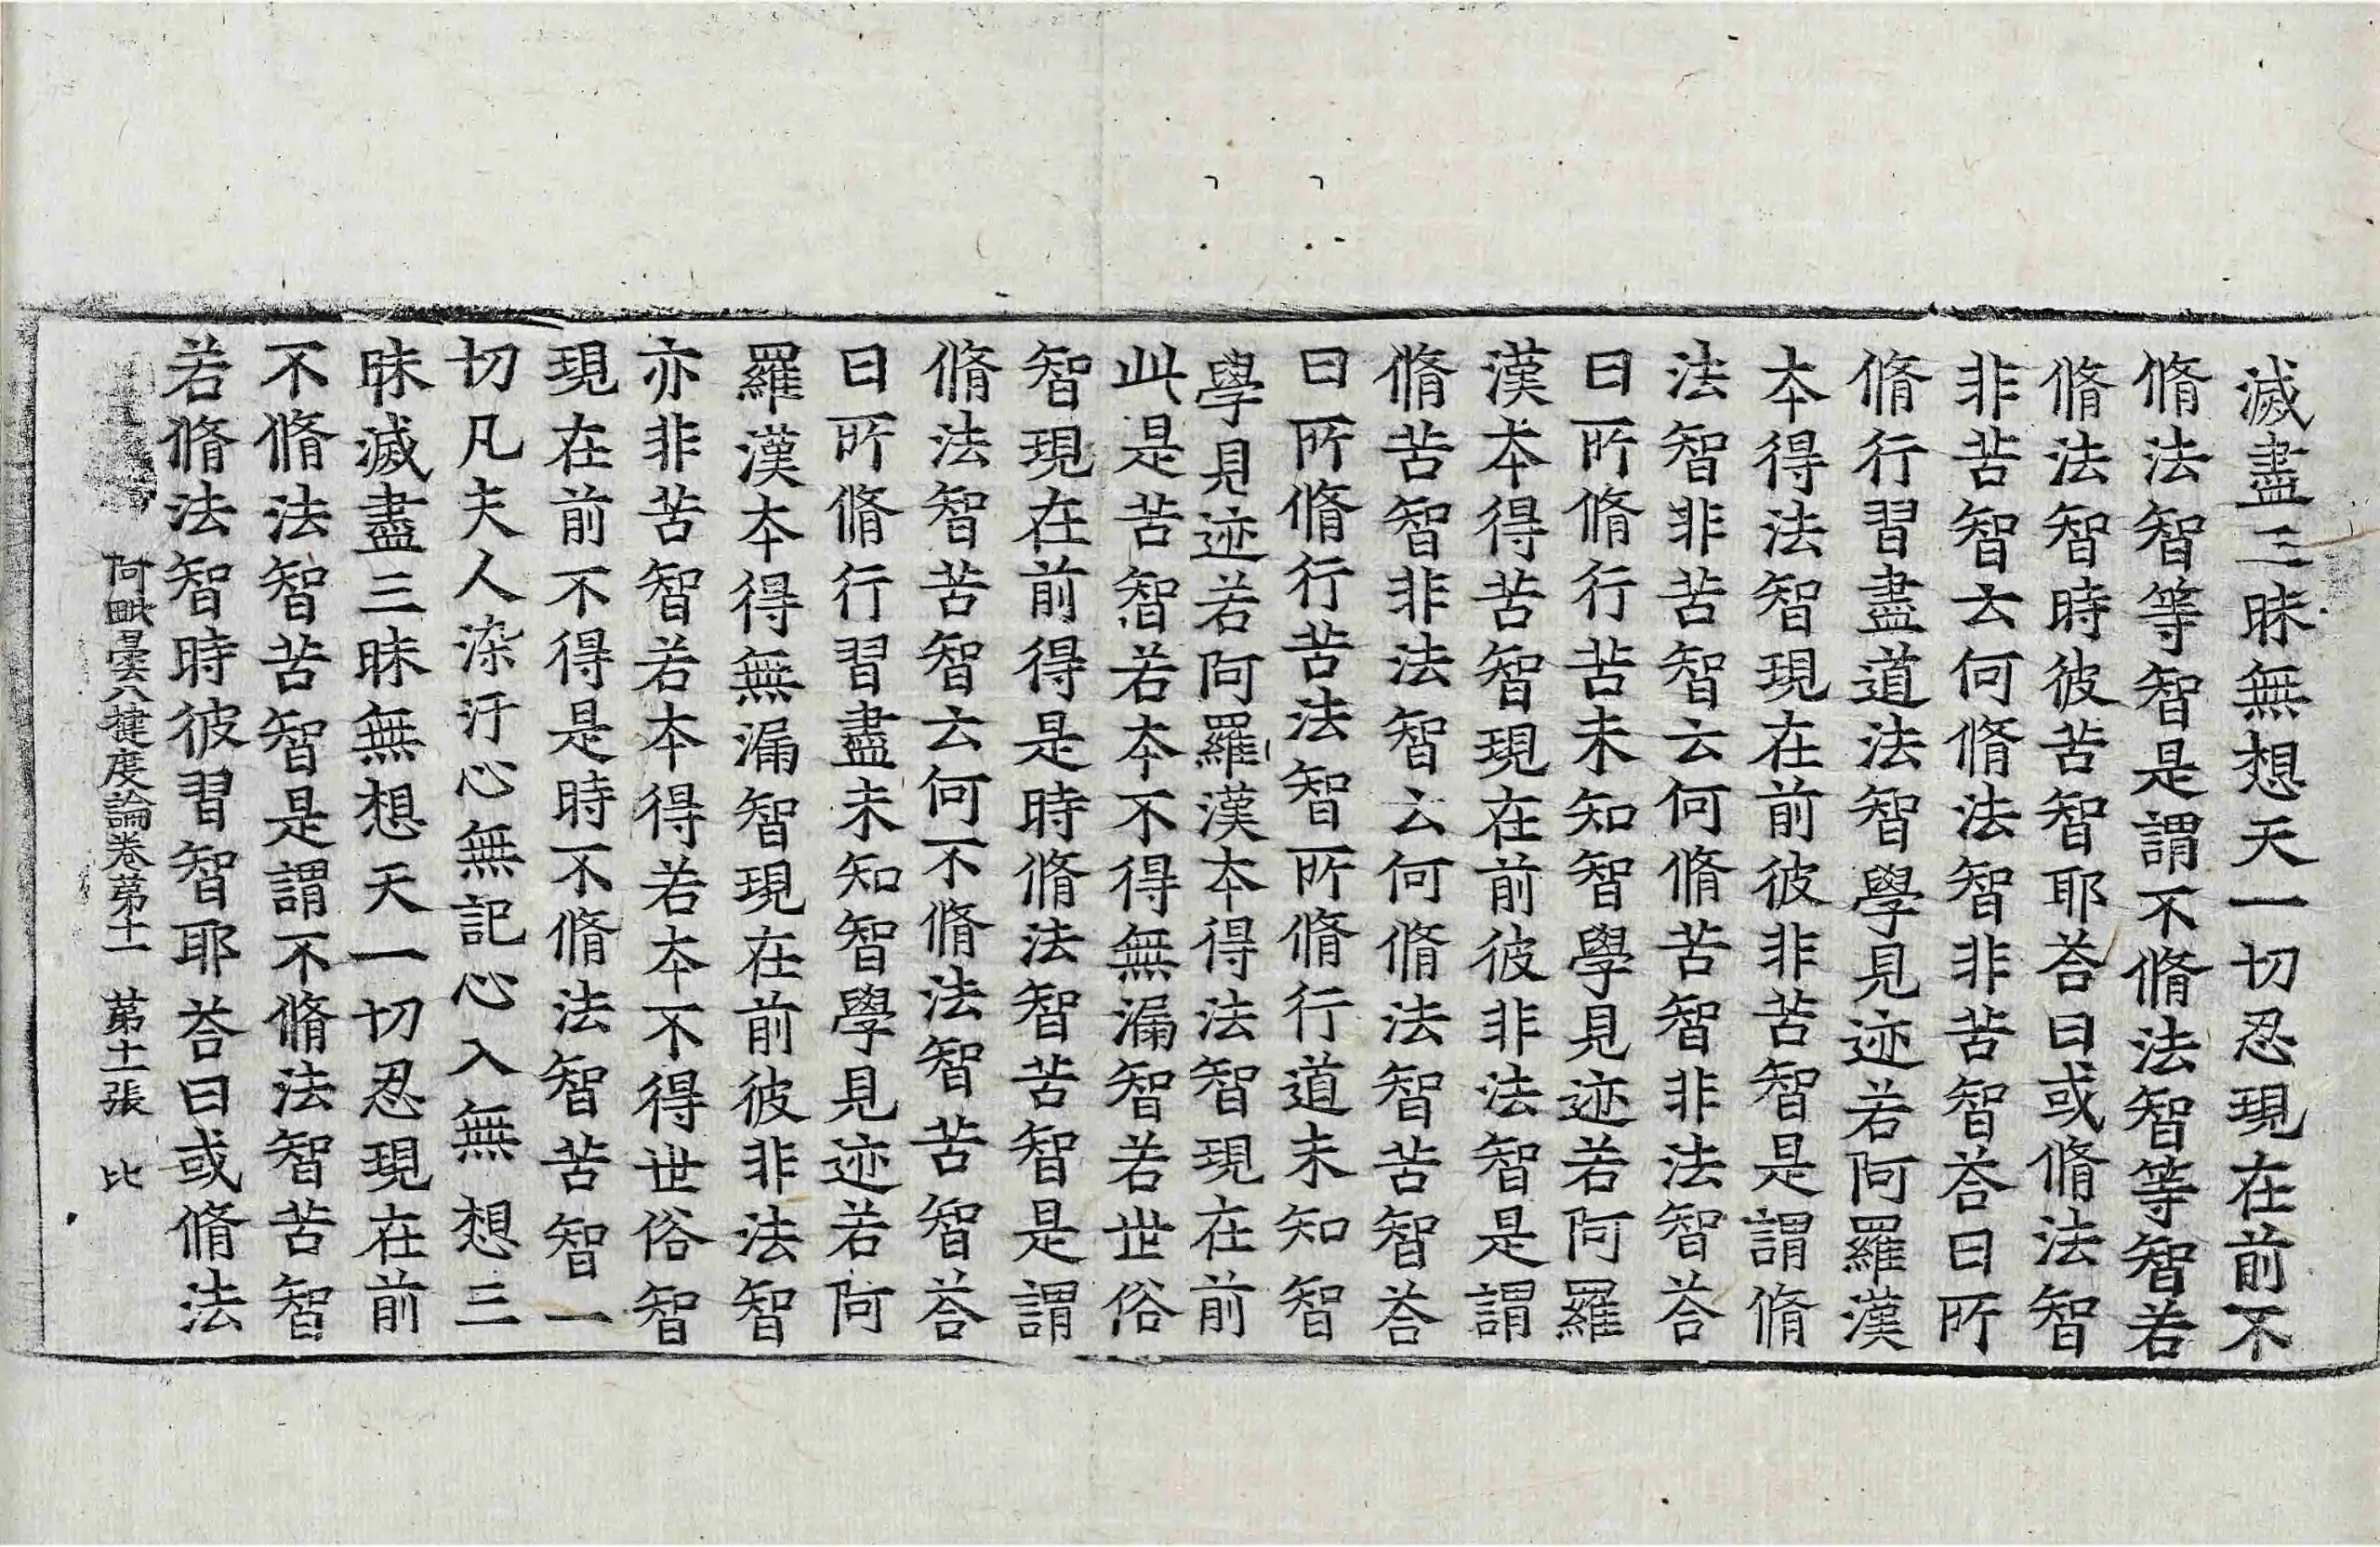 滅盡三昧無想天一切忍現在前不
脩法智等智是謂不脩法智等智若
脩法智時彼苦智耶荅曰或脩法智
非苦智云何脩法智非苦智荅曰所
脩行習盡道法智學見迹若阿羅漢
本得法智現在前彼非苦智是謂脩
法智非苦智云何脩苦智非法智荅
曰所脩行苦未知智學見迹若阿羅
漢本得苦智現在前彼非法智是謂
脩苦智非法智云何脩法智苦智荅
曰所脩行苦法智所脩行道未知智
學見迹若阿羅漢本得法智現在前
此是苦智若本不得無漏智若世俗
智現在前得是時脩法智苦智是謂
脩法智苦智云何不脩法智苦智荅
曰所脩行習盡未知智學見迹若阿
羅漢本得無漏智現在前彼非法智
亦非苦智若本得若本不得世俗智
現在前不得是時不脩法智苦智一
切凡夫人染汙心無記心入無想三
昧滅盡三昧無想天一切忍現在前
不脩法智苦智是謂不脩法智苦智
若脩法智時彼習智耶荅曰或脩法
阿毗曇八揵度論卷第十一 第十二張 比